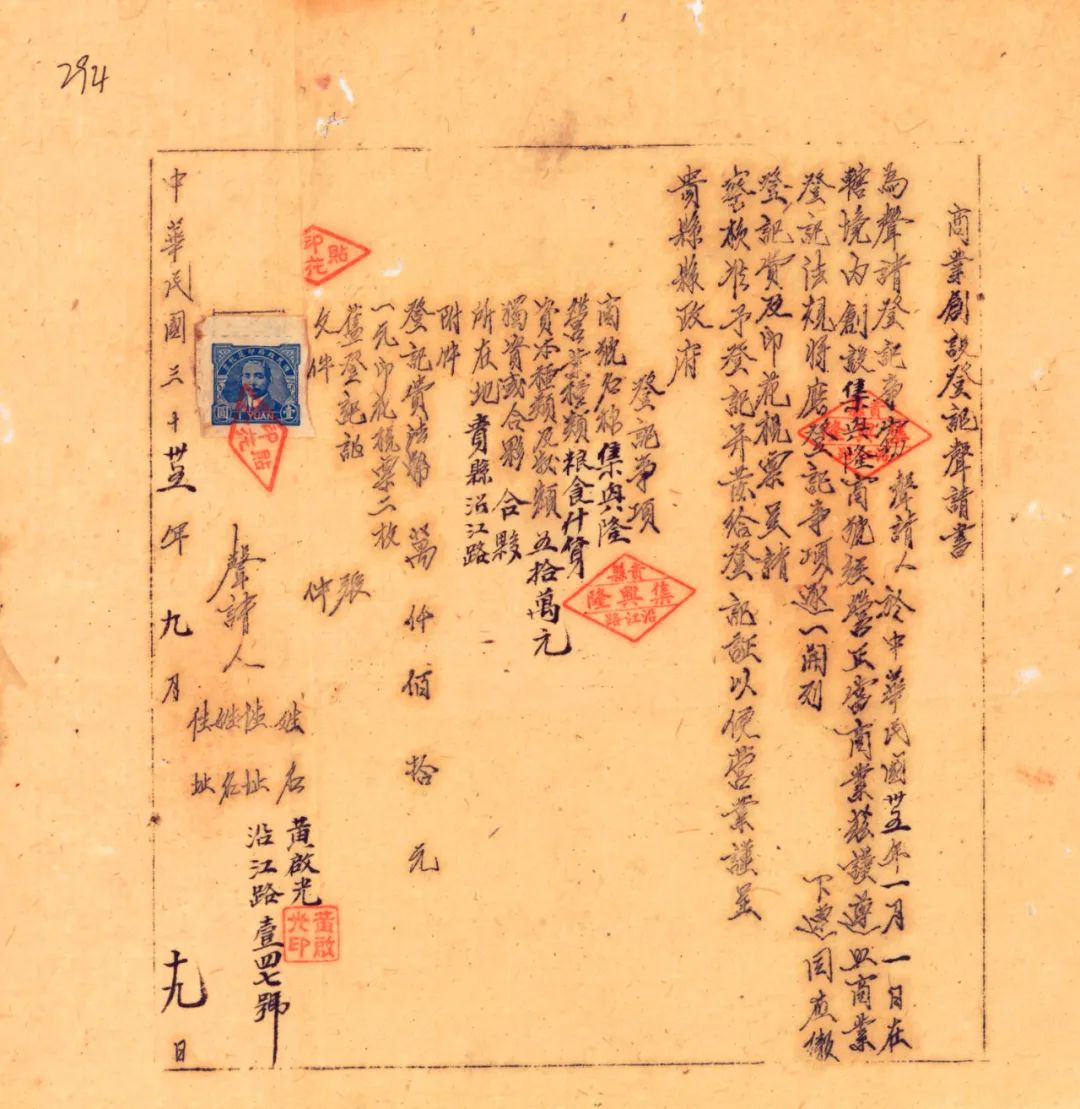 294
商業創設登記聲請書
為聲請登記事 聲請人於中華民國卅五年一月一日在
轄境內創設集興隆商號經營正當商業茲謹遵照商業
登記法規將應登記事項逐一開列下連同應繳
登記費及印花稅票呈請
察核准予登記并發給登記証以便營業謹呈
貴縣縣政府
登記事項
商號名称 集興隆
營業種類 粮食什貨
資本種類及款類 五拾萬元
獨資或合夥 合夥
所在地 貴縣沿江路
附件
登記費法幣 萬 仟 佰 拾 元
一元印花稅票二枚
舊登記証 張
文件 件
聲請人
姓名 黃啟光
住址 沿江路壹四七號
姓名
住址
中華民國三十卅五年九月十九日
貴縣
集興隆
沿江路
貴縣
集興隆
沿江路
貼印花
貼印花
黃啟光印
壹圓
1 YUAN